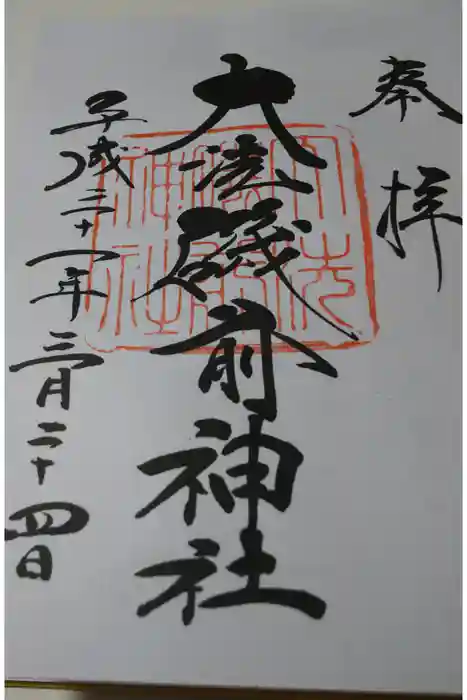 奉拝
大洗磯前神社
平成三十一年三月二十四日
大洗
神社